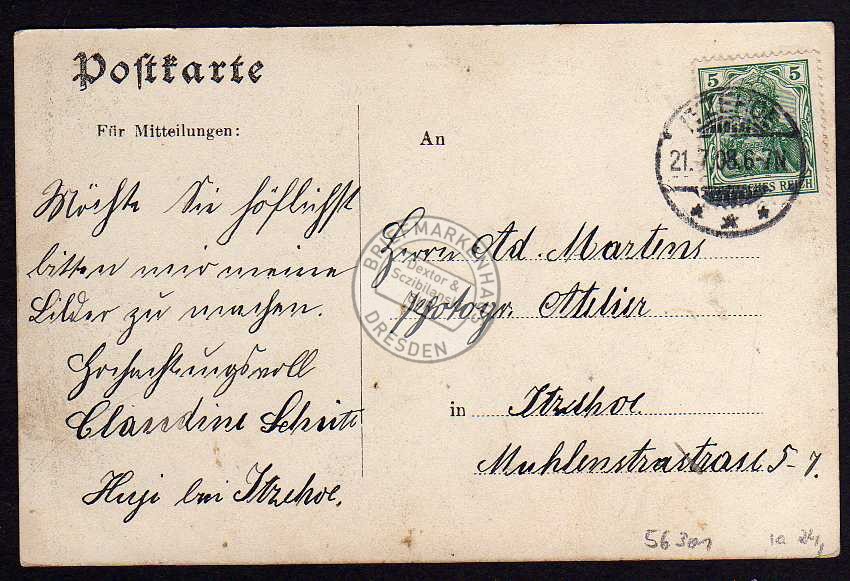 Postkarte
Für Mitteilungen:
Möchte Sie höflichst
bitten mir meine
Bilder zu machen.
Hochachtungsvoll
Claudine
Huje bei Itzehoe.
An
Herrn Ad. Martens
photogr. Atelier
in Itzehoe
Muhlenstrastrasse 5-7.
5 5
DEUTSCHES REICH
ITZEHOE
21.7.08.6-7N.
BRIEFMARKENHAUS
Dextor &
DRESDEN